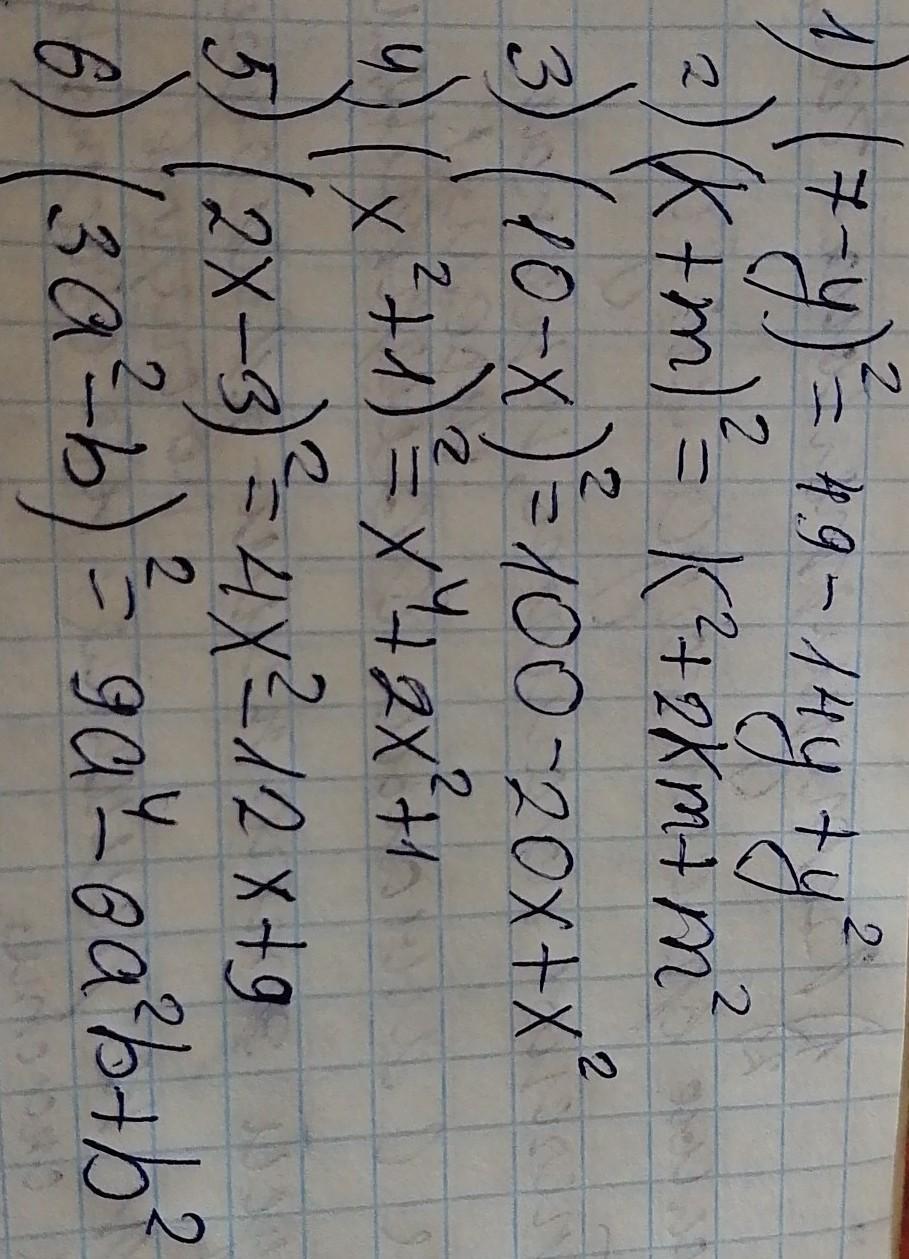 1) (7-y)² = 49-14y+y²
2) (k+m)² = k²+2km+m²
3) (10-x)² = 100-20x+x²
4) (x²+1)² = x⁴+2x²+1
5) (2x-3)² = 4x²-12x+9
6) (3a²-b)² = 9a⁴-6a²b+b²